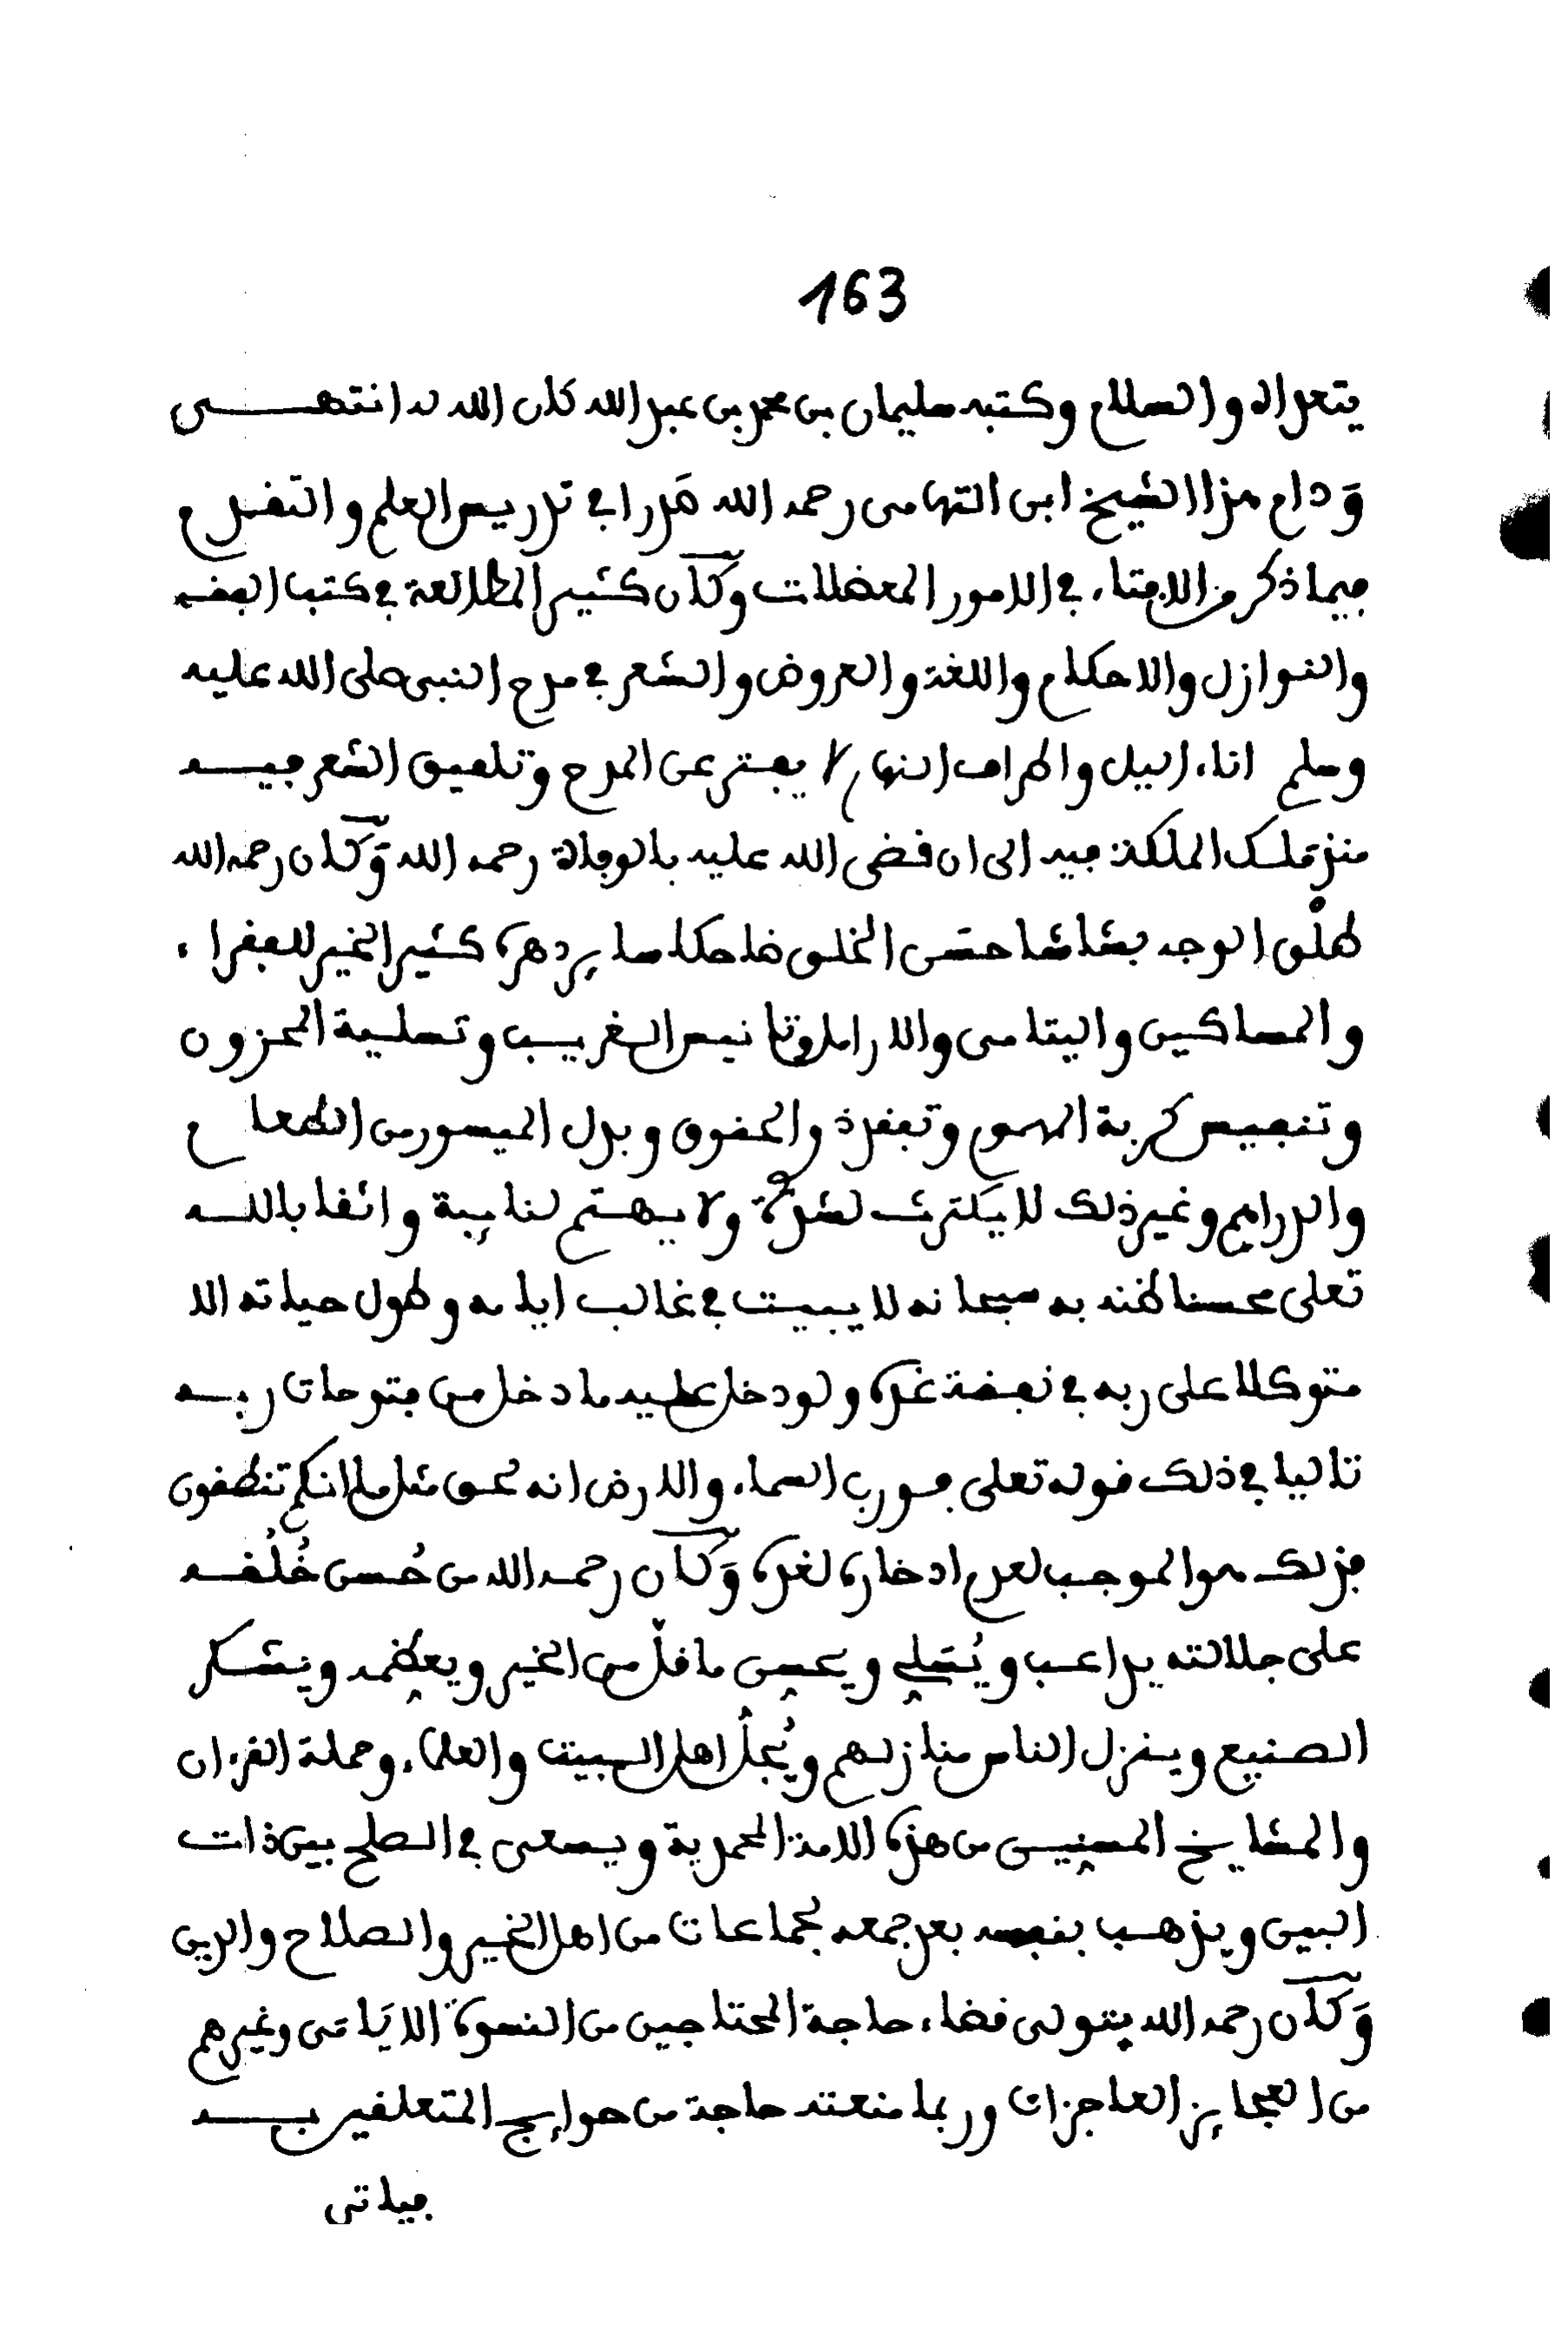 163
يتعداه والسلام وكتبه سليمان بن محمد بن عبد الله كان الله له انتهى
ودام هذا الشيخ ابن التهامى رحمه الله فدرا في تدريس العلم والتقدم
فيما ذكر من الافتاء في الامور المعضلات وكان كثير المطالعة في كتب الفقه
والنوازل والاحكام واللغة والعروض والشعر في مدح النبى صلى الله عليه
وسلم اناء اليل واطراف النهار لا يفتر عن المدح وتلفيق الشعر فيه
منذ ملك الملكة فيه الى ان قضى الله عليه بالوفاة رحمه الله وكان رحمه الله
طلق الوجه بشاشا حسن الخلق ضاحكا سا يردهرة كثير الخير للفقراء
والمساكين واليتامى والارامل وتانيس الغريب وتسلية المحزون
وتنفيس كربة المهموم وتفقده والحقوق وبذل الميسور من الطعام
والدراهم وغير ذلك لا يكترث لشدة ولا يهتم لنايبة واثقا بالله
تعلى محسنا ظنه به سبحانه لا يبيت في غالب ايامه وطول حياته الا
متوكلا على ربه في نفقة غده ولو دخل عليه ما دخل من فتوحات ربه
تاليا في ذلك قوله تعلى فورب السماء والارض انه لحق مثل ما انكم تنطقون
فذلك هو الموجب لعدم ادخاره لغده وكان رحمه الله من حُسن خُلُقه
على جلالته يداعب ويُسَلي ويحسن ما قلّ من الخير ويعظمه ويشكر
الصنيع وينزل الناس منازلهم ويُجلُّ اهل البيت والعلماء وحملة القرءان
والمشايخ المسنين من هذه الامة المحمدية ويسعى في الصلح بين ذات
البين ويذهب بنفسه بعد جمعه لجماعات من اهل الخير والصلاح والدين
وكان رحمه الله يتولى قضاء حاجة المحتاجين من النسوة الايامى وغيرهم
من العجايز العاجزات وربما منعته حاجة من حوايج المتعلقين به
فياتى